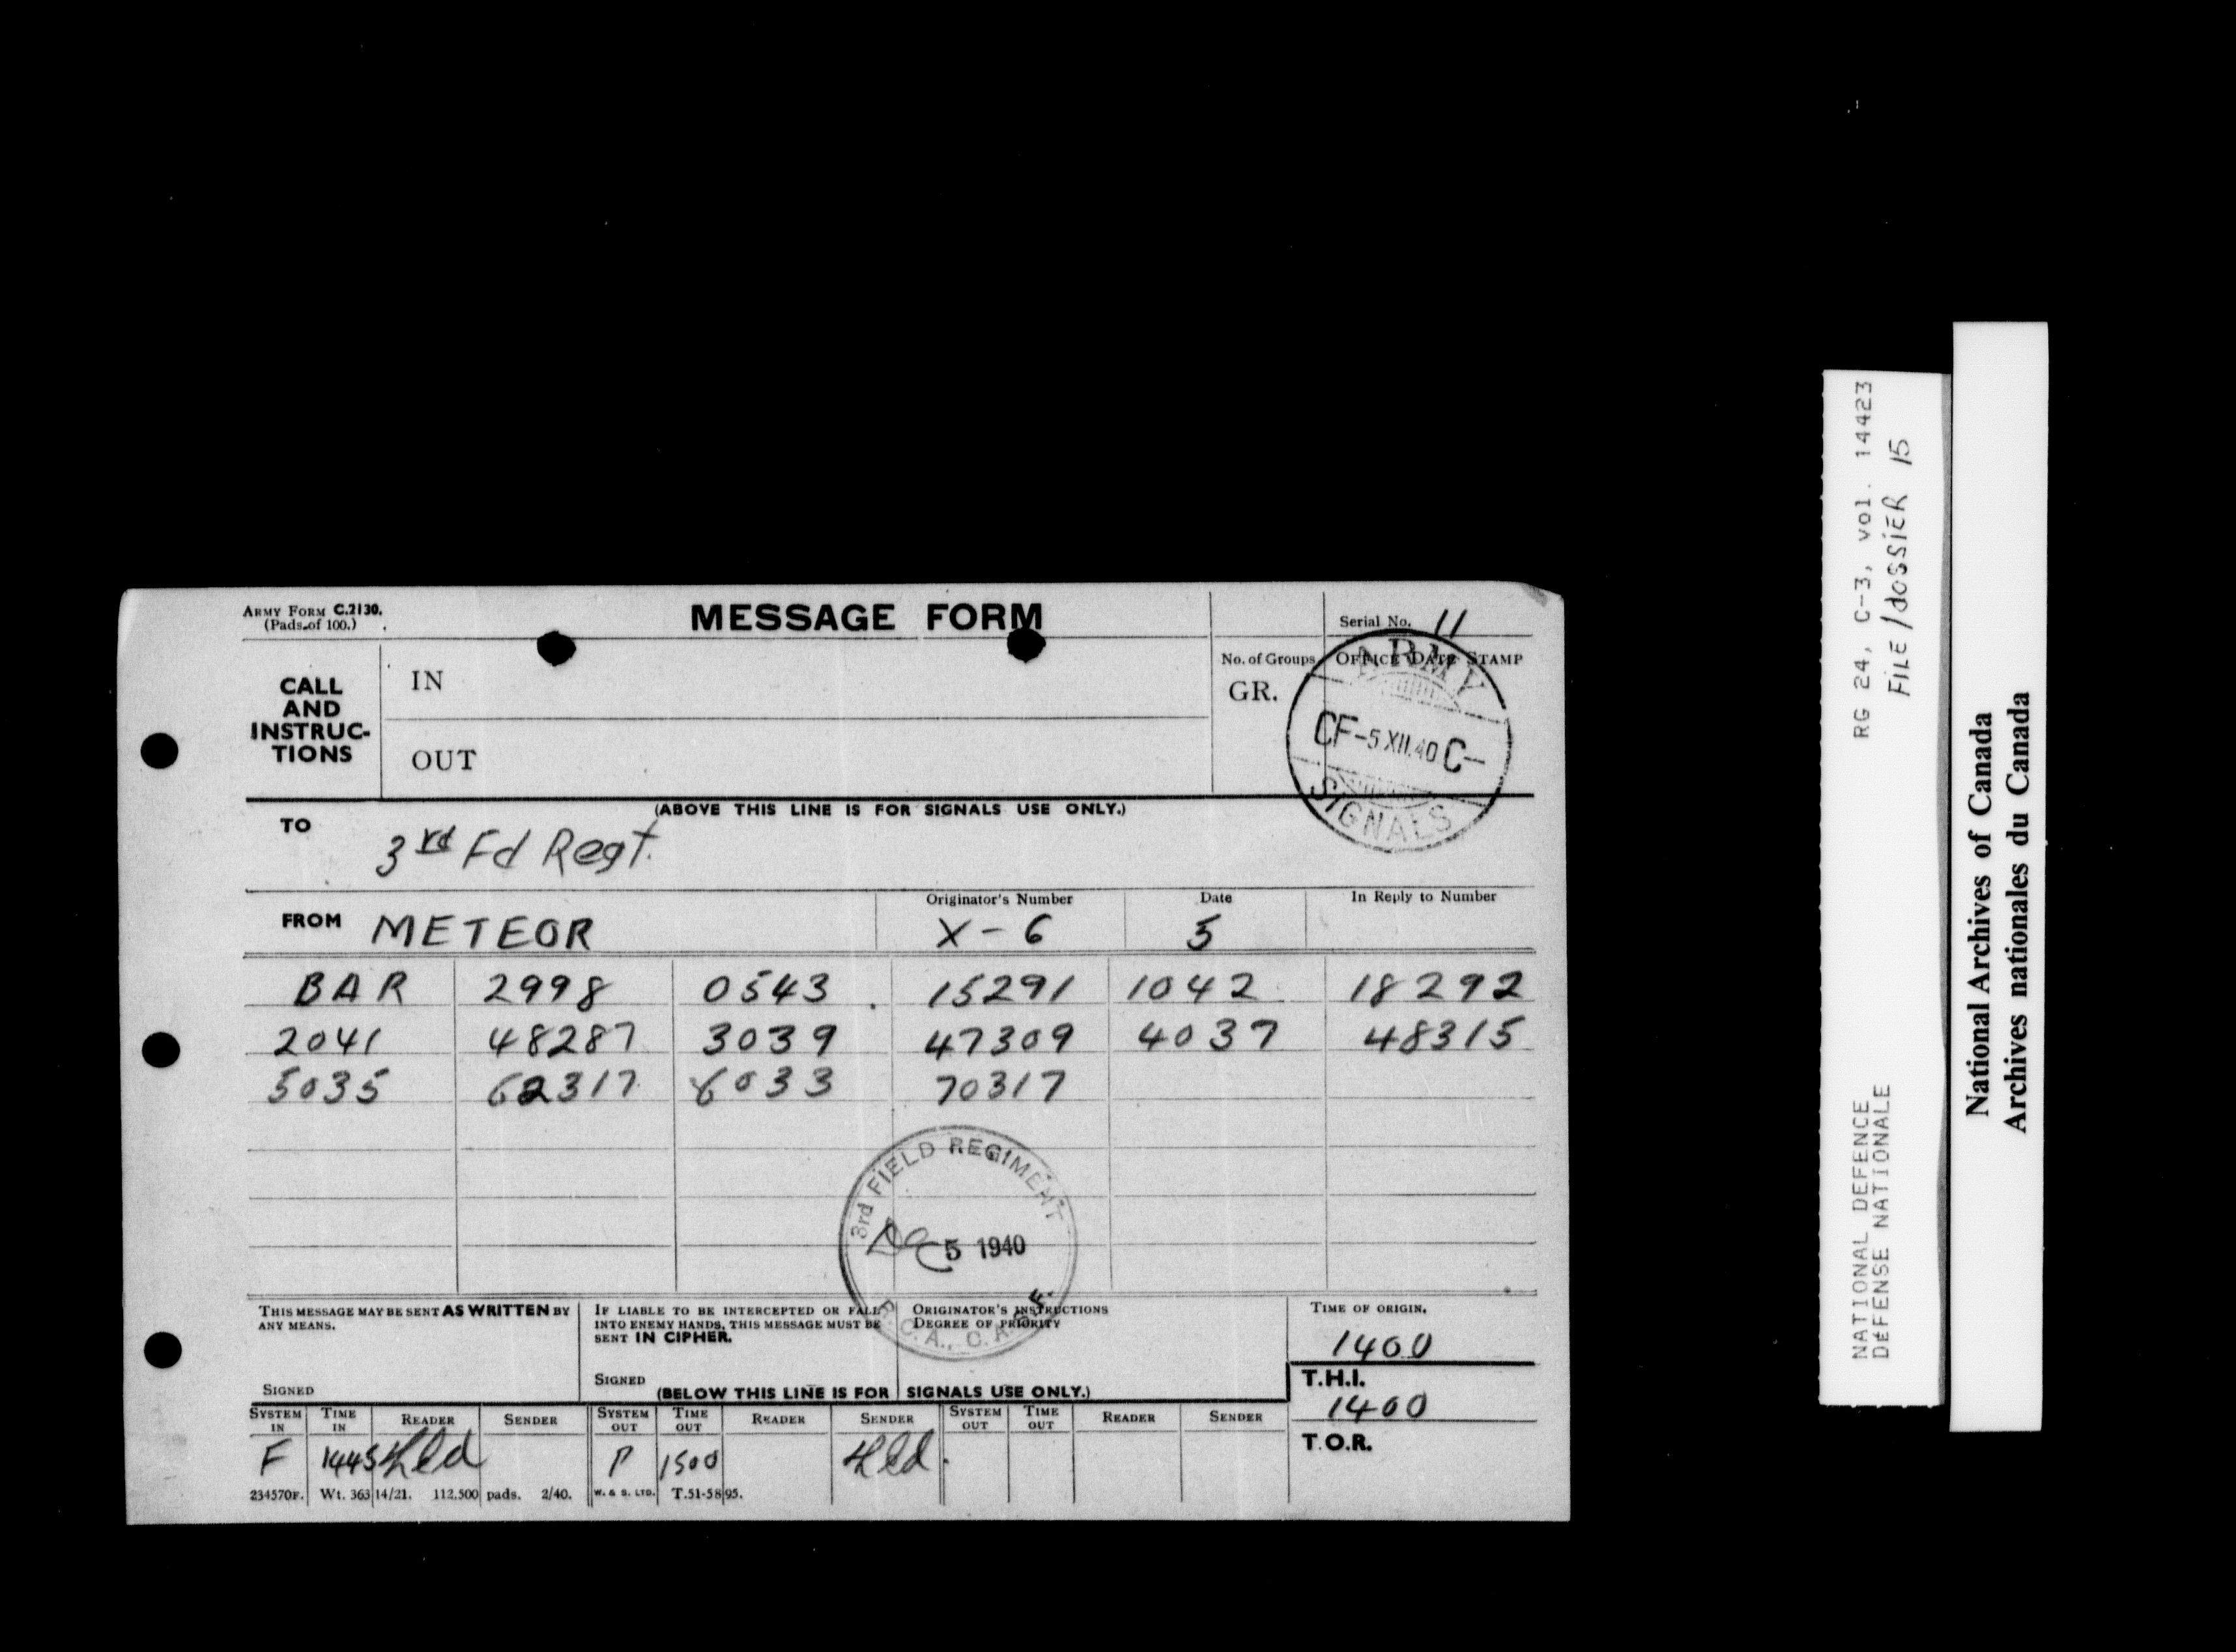 ARMY FORM C.2130.
(Pads of 100.)
MESSAGE FORM
Serial No. 11
CALL AND INSTRUC-TIONS
IN
OUT
No. of Groups
GR.
OFFICE DATE STAMP
ARMY
CF-5 XII.40 C-
SIGNALS
(ABOVE THIS LINE IS FOR SIGNALS USE ONLY.)
TO 3rd Fd Regt.
FROM METEOR
Originator's Number X-6
Date 5
In Reply to Number
BAR 2998 0543 15291 1042 18292
2041 48287 3039 47309 4037 48315
5035 62317 6033 70317
3rd FIELD REGIMENT
Dec 5 1940
R.C.A., C.A.S.F.
THIS MESSAGE MAY BE SENT AS WRITTEN BY
ANY MEANS.
SIGNED
IF LIABLE TO BE INTERCEPTED OR FALL
INTO ENEMY HANDS, THIS MESSAGE MUST BE
SENT IN CIPHER.
SIGNED
ORIGINATOR'S INSTRUCTIONS
DEGREE OF PRIORITY
TIME OF ORIGIN.
1400
T.H.I.
1400
T.O.R.
(BELOW THIS LINE IS FOR SIGNALS USE ONLY.)
SYSTEM IN TIME IN READER SENDER SYSTEM OUT TIME OUT READER SENDER SYSTEM OUT TIME OUT READER SENDER
F 1445 P 1500
234570F. Wt. 363 14/21. 112,500 pads. 2/40. W. & S. LTD. T.51-5895.
RG 24, C-3, vol. 14423
FILE/dOSSiER 15
NATIONAL DEFENCE
DÉFENSE NATIONALE
National Archives of Canada
Archives nationales du Canada